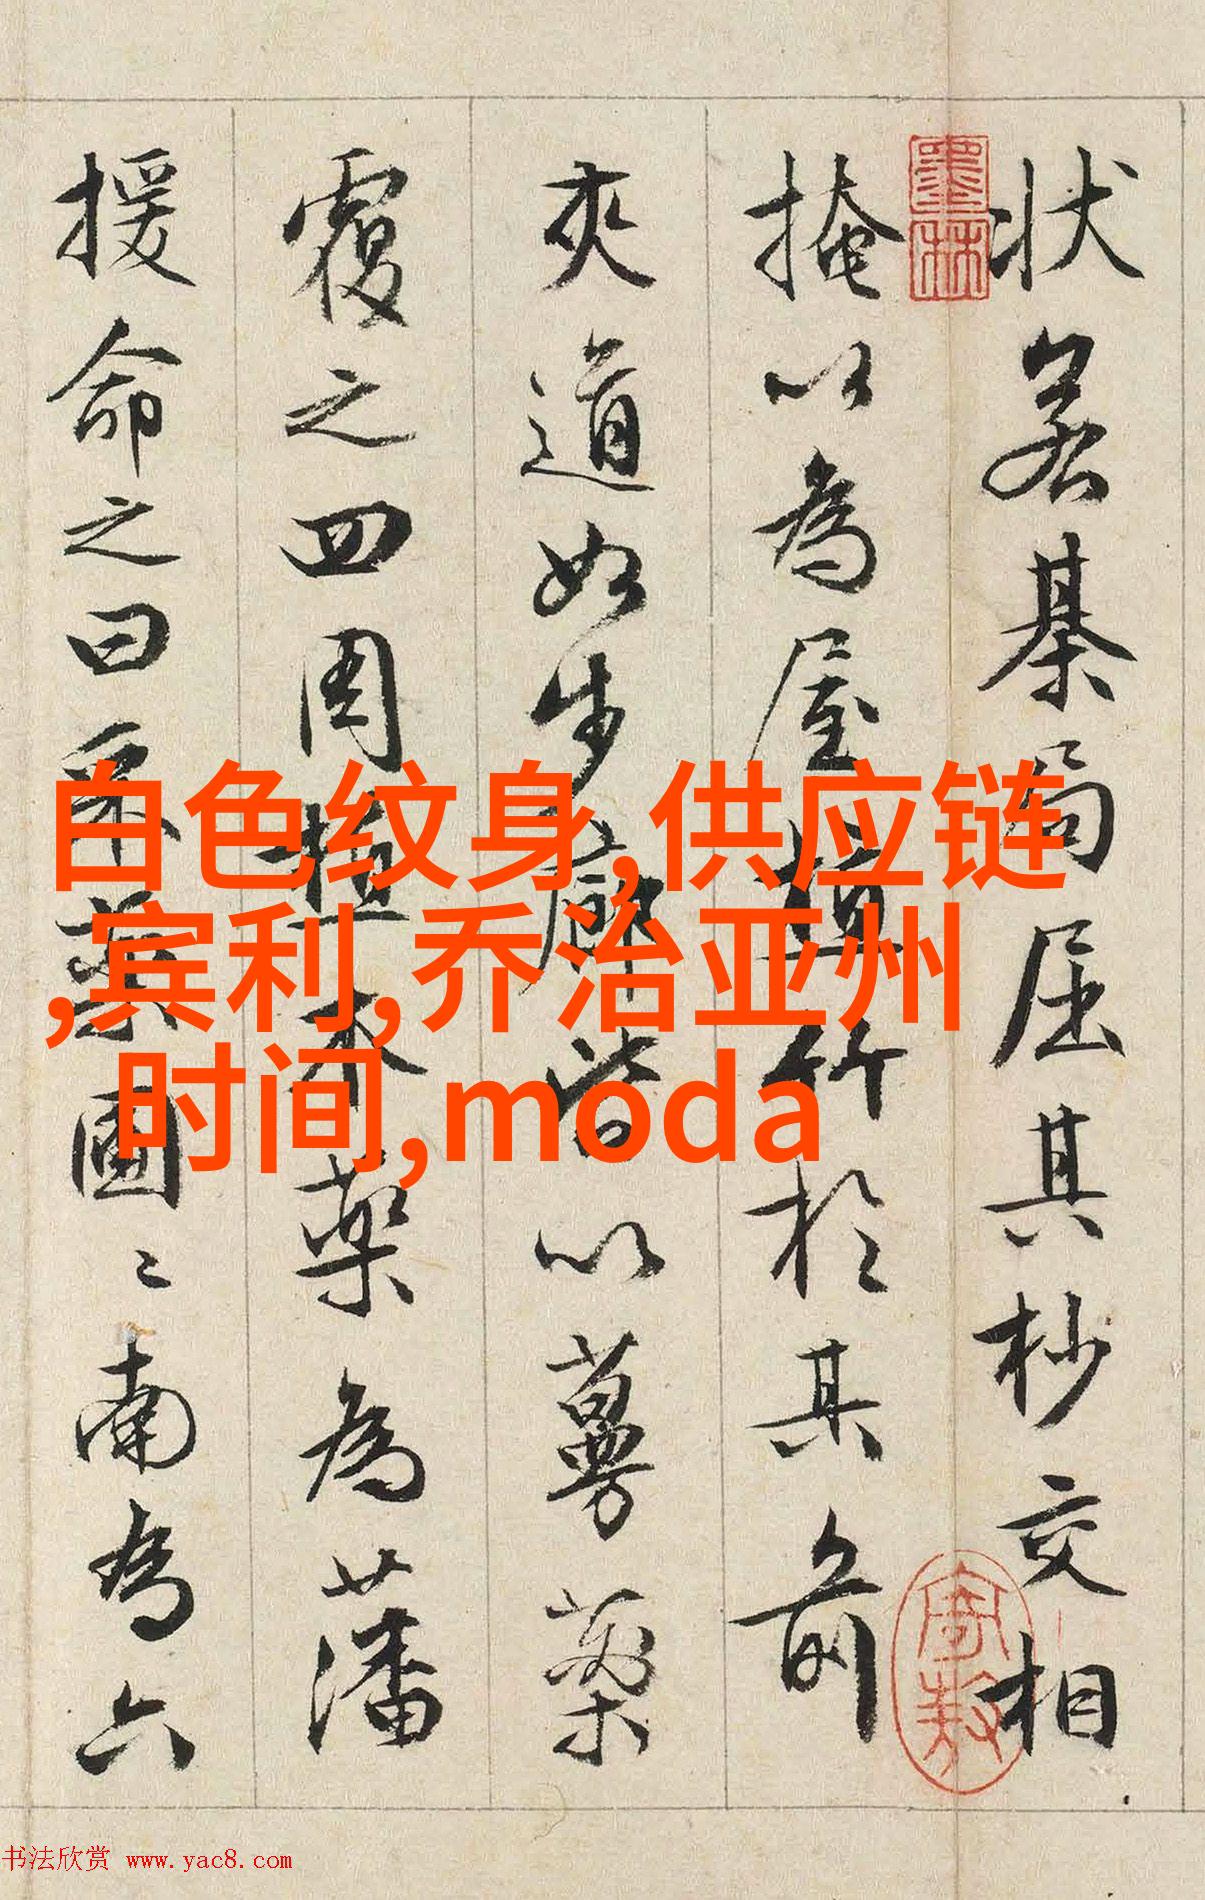 狀若棊局屈其杪交相
掩以為屋植竹於其前
夾道如步廊皆以蔓藥
覆之四周植木藥為藩
援命之曰采藥圃〻南為六
墨林
白色纹身,供应链
,宾利,乔治亚州
时间,moda
书法欣赏 www.yac8.com